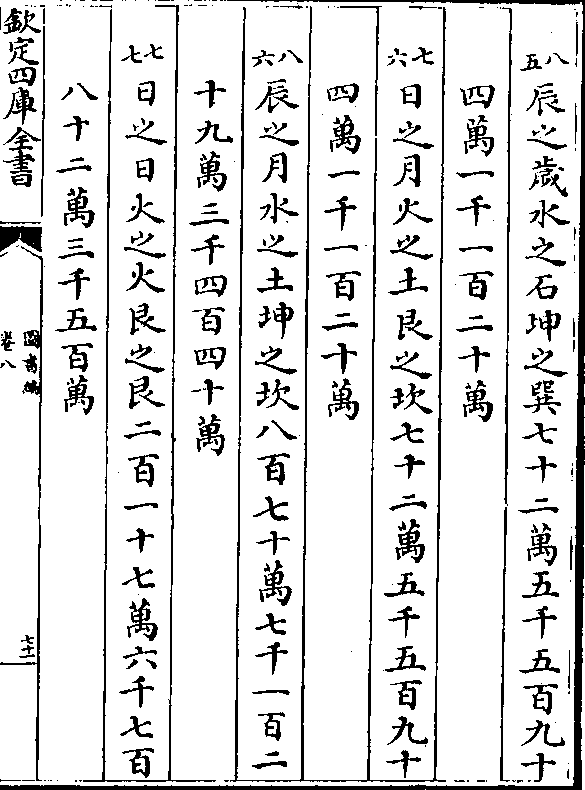 八五辰之歲水之石坤之巽七十二萬五千五百九十
四萬一千一百二十萬
七六日之月火之土艮之坎七十二萬五千五百九十
四萬一千一百二十萬
八六辰之月水之土坤之坎八百七十萬七千一百二
十九萬三千四百四十萬
七七日之日火之火艮之艮二百一十七萬六千七百
八十二萬三千五百萬
欽定四庫全書
圖書編
卷八
七十一